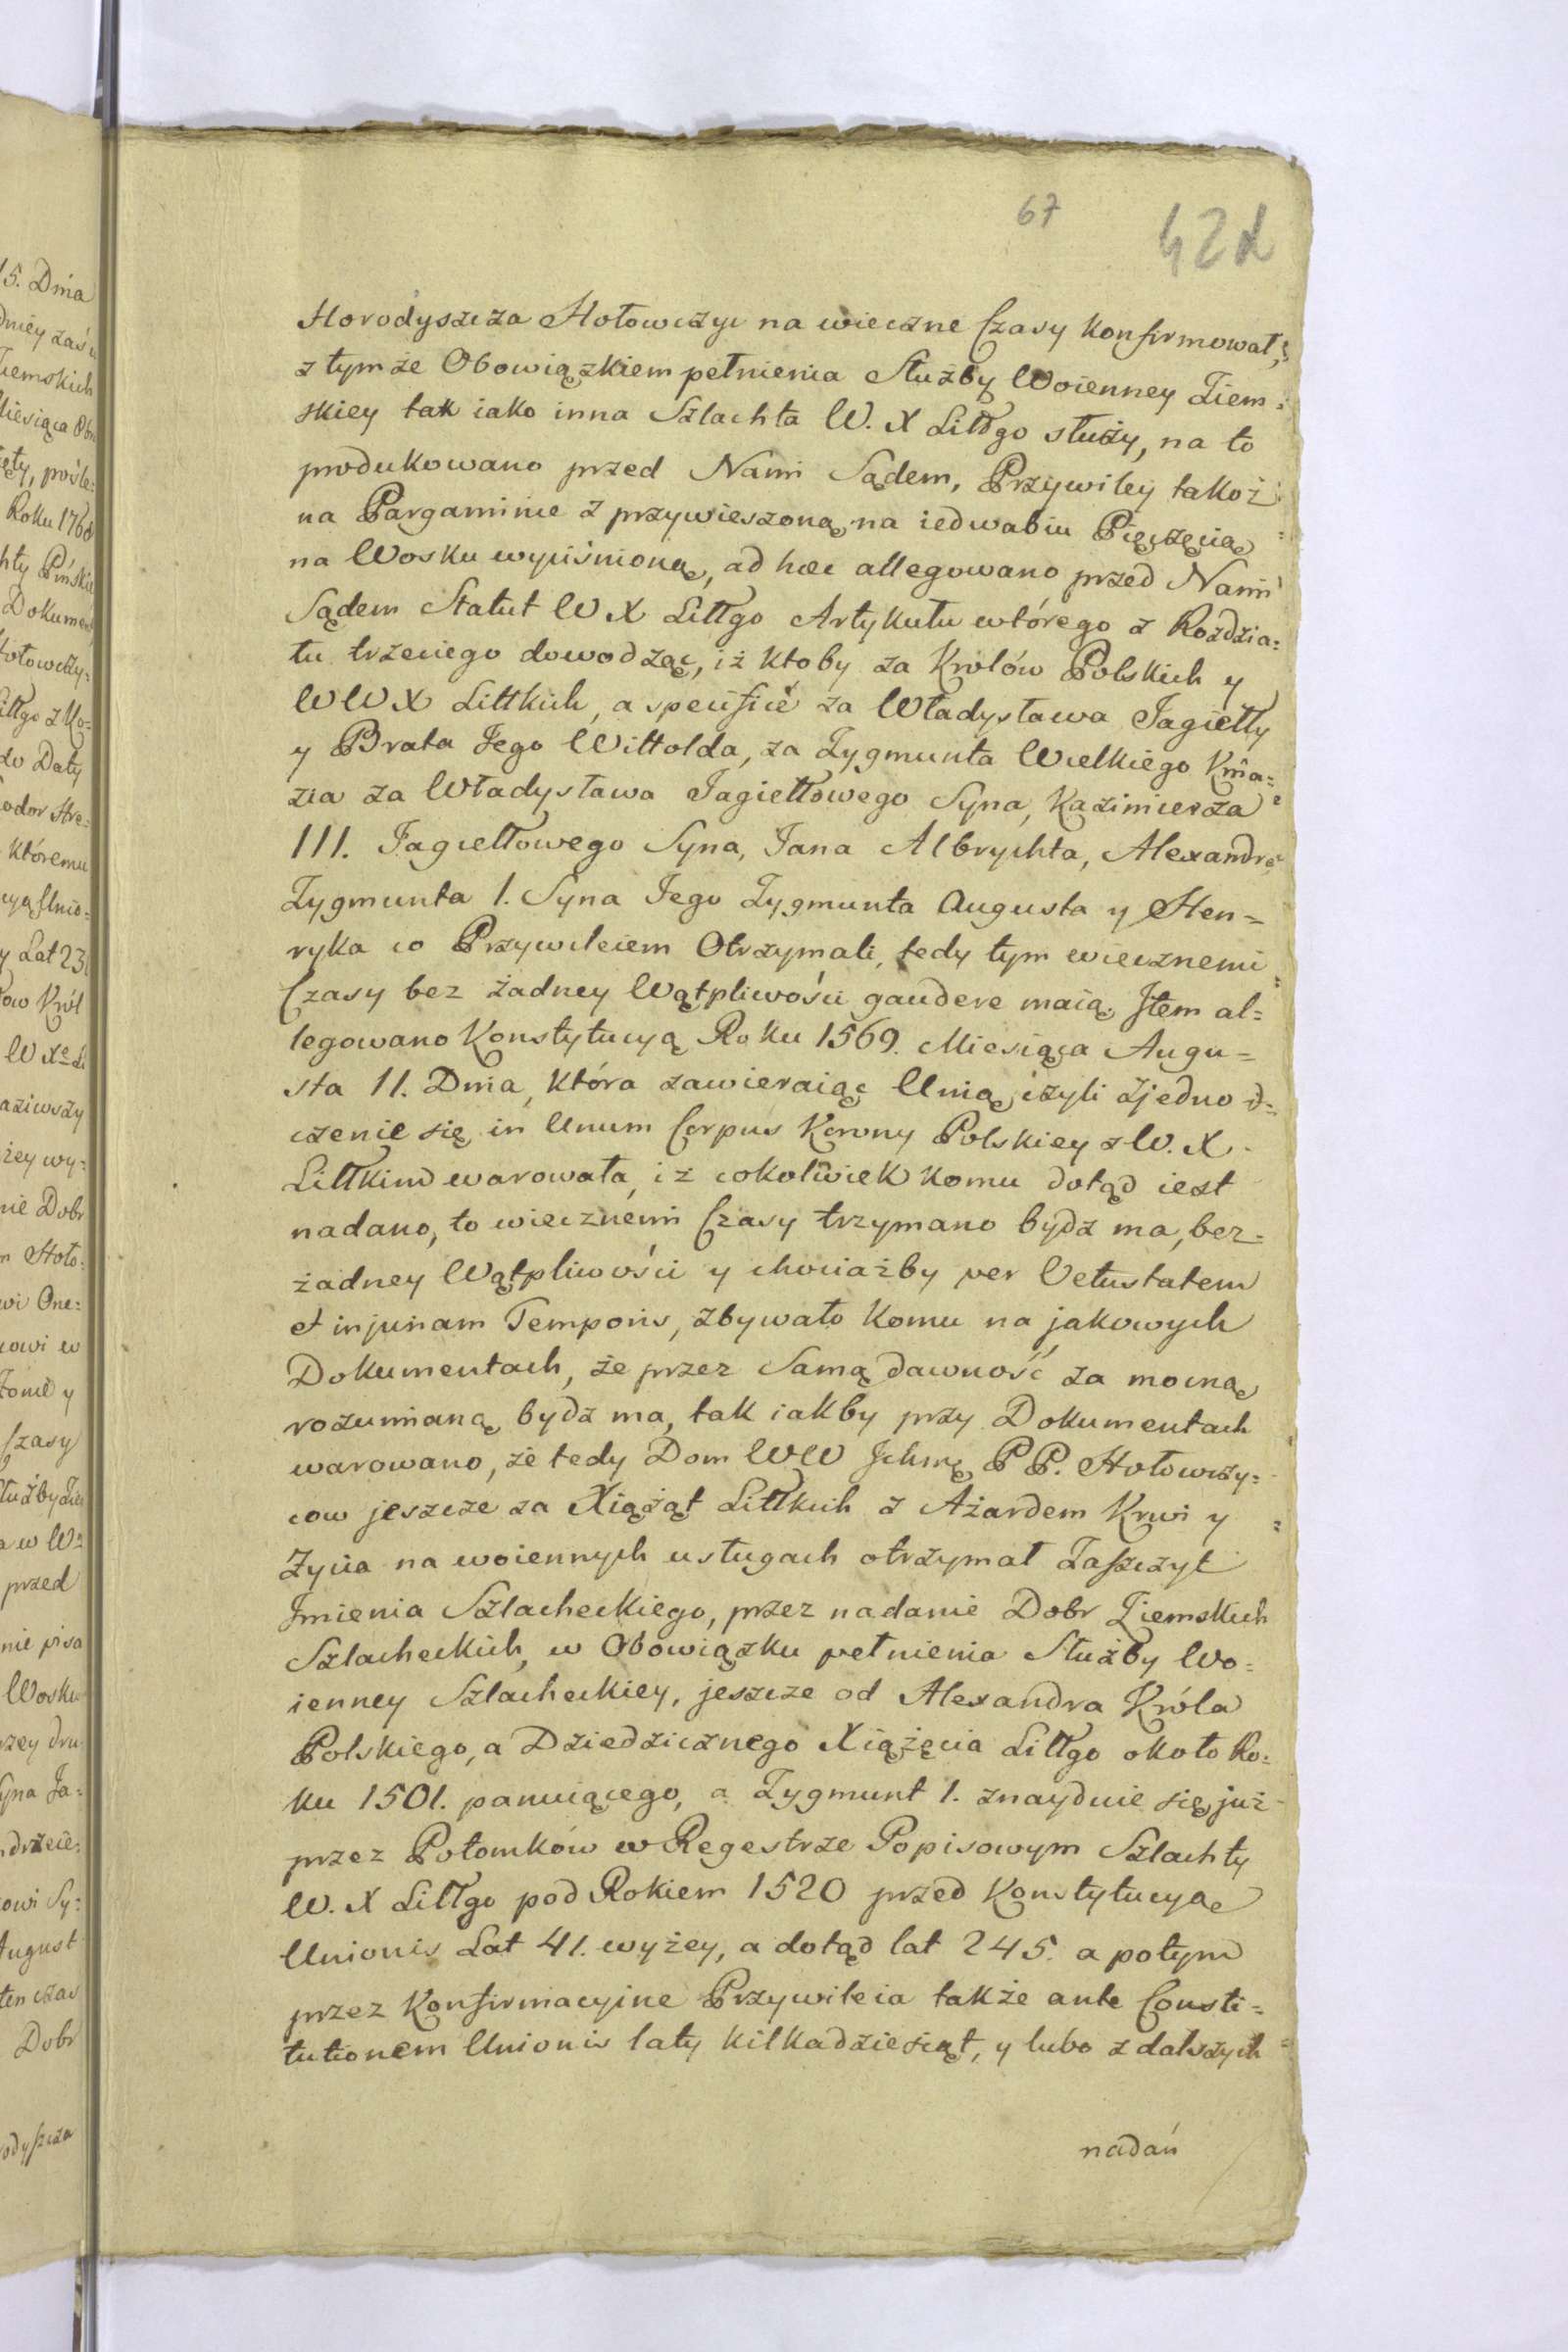 67
42d
Horodyszcza Hołowczyc na wieczne Czasy konfirmował,
z tym że Obowiązkiem pełnienia Służby Woienney Ziem=
skiey tak iako inna Szlachta W. X Littgo służy, na to
produkowano przed Nami Sądem, Przywiley takoż
na Pargaminie z przywieszoną na iedwabiu Pięczęcią
na Wosku wyciśnioną, ad hæc allegowano przed Nami
Sądem Statut W X Littgo Artykułu wtórego z Rozdzia=
łu trzeciego dowodząc, iż ktoby za Krolów Polskich y
WWX Littkich, a specificè za Władysława Jagiełły
y Brata Jego Wittolda, za Zygmunta Wielkiego Knia=
zia za Władysława Jagiełłowego Syna, Kazimierza
III. Jagiełłowego Syna, Jana Albrychta, Alexandra
Zygmunta 1. Syna Jego Zygmunta Augusta y Hen=
ryka co Przywileiem Otrzymali, tedy tym wiecznemi
Czasy bez żadney Wątpliwości gaudere maią, Jtem al=
legowano Konstytucyą Roku 1569. Miesiąca Augu=
sta 11. Dnia, która zawieraiąc Unią, czyli Zjedno=
czenie się in Unum Corpus Korony Polskiey z W. X
Littkim warowała, iż cokolwiek komu dotąd iest
nadano, to wiecznemi Czasy trzymano bydz ma, bez=
żadney Wątpliwości y chociażby per Vetustatem
et injuriam Temporis, zbywało komu na jakowych
Dokumentach, że przez Samą dawność za mocną
rozumianą bydz ma, tak iakby przy Dokumentach
warowano, że tedy Dom WW Jchmę PP. Hołowczy=
cow jeszcze za Xiążąt Littkich z Ażardem Krwi y
Zycia na woiennych usługach otrzymał Zaszczyt
Jmienia Szlacheckiego, przez nadanie Dobr Ziemskich
Szlacheckich, w Obowiązku pełnienia Służby Wo=
ienney Szlacheckiey, jeszcze od Alexandra Króla
Polskiego, a Dziedzicznego Xiążęcia Littgo około Ro=
ku 1501. panuiącego, a Zygmunt 1. znayduie się już
przez Potomków w Regestrze Popisowym Szlachty
W. X Littgo pod Rokiem 1520 przed Konstytucyą
Unionis Lat 41. wyżey, a dotąd lat 245. a potym
przez Konfirmacyine Przywileia także ante Consti=
tutionem Unionis laty kilkadziesiąt, y lubo z dalszych
nadań